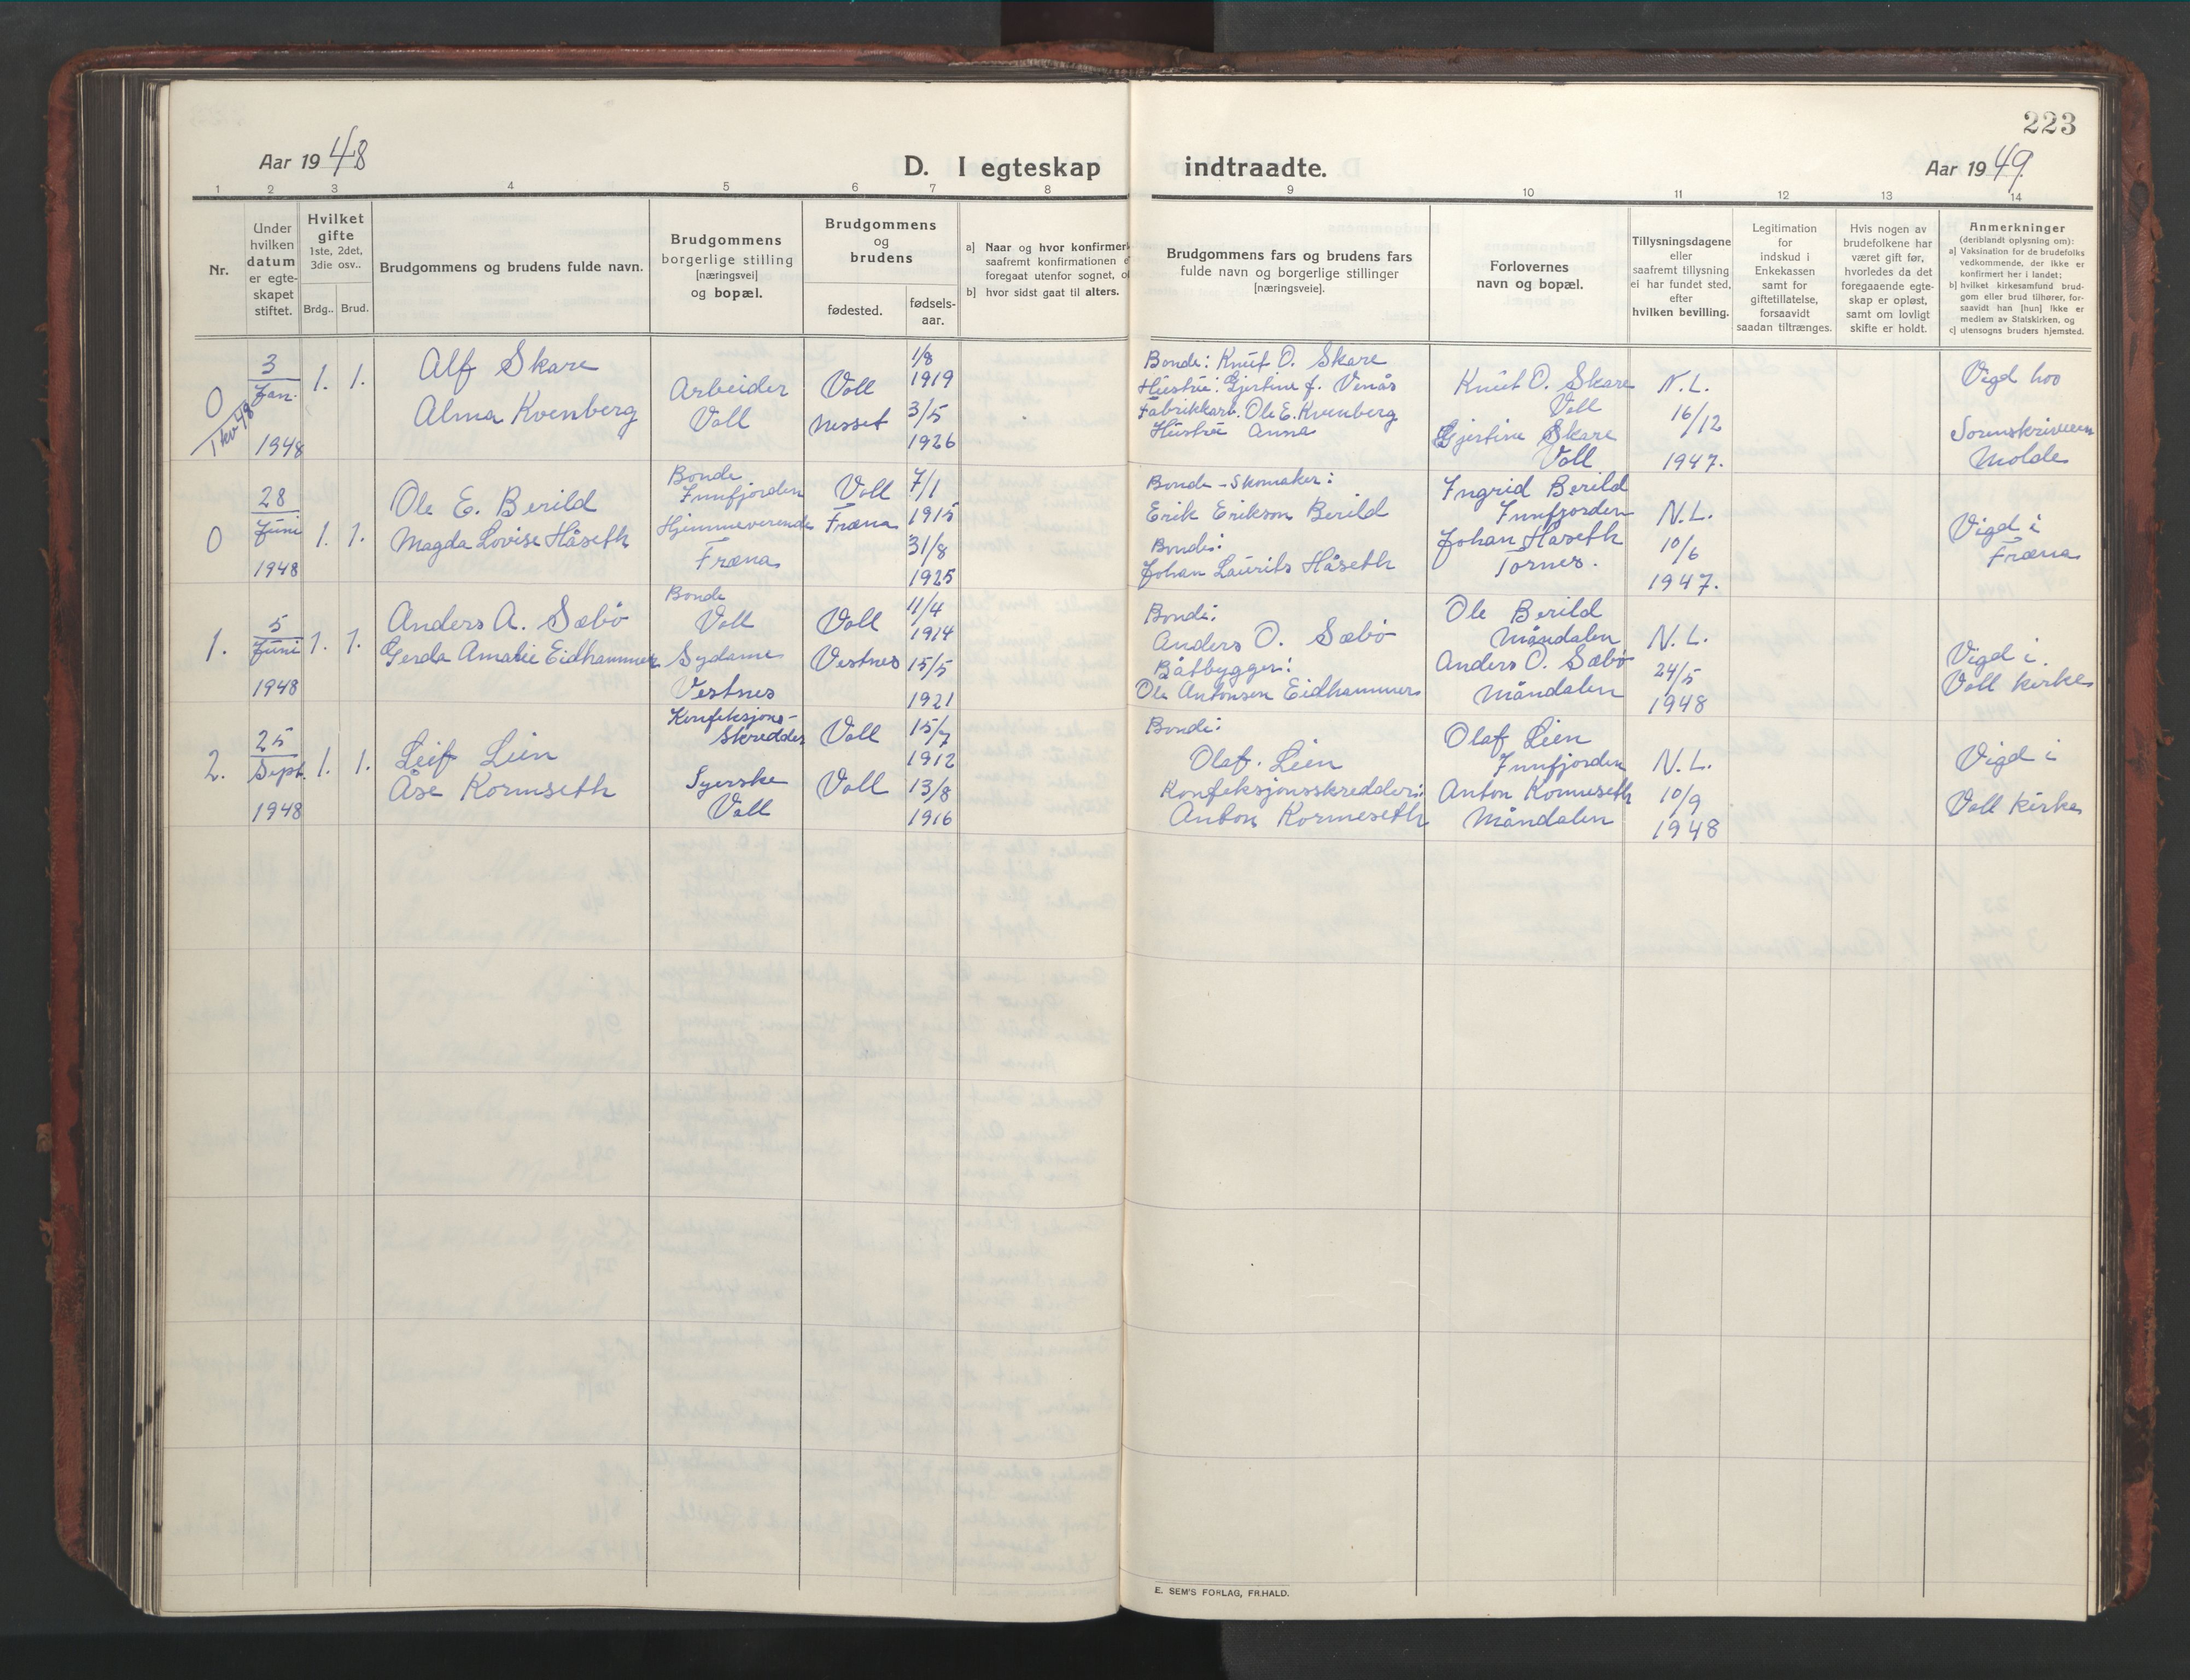 223
Aar 1948
D. I egteskap indtraadte.
Aar 1949
1 2 3 4 5 6 7 8 9 10 11 12 13 14
Nr.
Under
hvilken
datum
er egte-
skapet
stiftet.
Hvilket
gifte
1ste, 2det,
3die osv..
Brdg.. Brud.
Brudgommens og brudens fulde navn.
Brudgommens
borgerlige stilling
[næringsvei]
og bopæl.
Brudgommens
og
brudens
fødested.
fødsels-
aar.
a] Naar og hvor konfirmer
saafremt konfirmationen
foregaat utenfor sognet,
b] hvor sidst gaat til alters.
Brudgommens fars og brudens fars
fulde navn og borgerlige stillinger
[næringsveie].
Forlovernes
navn og bopæl.
Tillysningsdagene
eller
saafremt tillysning
ei har fundet sted,
efter
hvilken bevilling.
Legitimation
for
indskud i
Enkekassen
samt for
giftetillatelse,
forsaavidt
saadan tiltrænges.
Hvis nogen av
brudefolkene har
været gift før,
hvorledes da det
foregaaende egte-
skap er opløst,
samt om lovligt
skifte er holdt.
Anmerkninger
(deriblandt oplysning om):
a] Vaksination for de brudefolks
vedkommende, der ikke er
konfirmert her i landet;
b] hvilket kirkesamfund brud-
gom eller brud tilhører, for-
saavidt han [hun] ikke er
medlem av Statskirken, og
c] utensogns bruders hjemsted.
0
1 kv 48
3
Jan.
1948
1. 1.
Alf Skare
Alma Kvenberg
Arbeider
Voll
Voll
Nesset
1/8
1919
3/5
1926
Bonde: Knut O. Skare
Hustru: Gjertine f. Venås
Fabrikkarb. Ole E. Kvenberg
Hustru Anna
Knut O. Skare
Voll
Gjertine Skare
Voll
N.L.
16/12
1947.
Vigd hos
Sorenskriveren
Molde
0
28
Juni
1948
1. 1.
Ole E. Berild
Magda Lovise Håseth
Bonde
Innfjorden
Hjemmeverende
Fræna
Voll
Fræna
7/1
1915
31/8
1925
Bonde - Skomaker:
Erik Erikson Berild
Bonde:
Johan Laurits Håseth
Ingrid Berild
Innfjorden
Johan Håseth
Tornes.
N.L.
10/6
1947.
Vigd i
Fræna
1.
5
Juni
1948
1. 1.
Anders A. Sæbö
Gerda Amalie Eidhammer
Bonde
Voll
Sydame
Vestnes
Voll
Vestnes
11/4
1914
15/5
1921
Bonde:
Anders O. Sæbö
Båtbygger:
Ole Antonsen Eidhammer
Ole Berild
Måndalen
Anders O. Sæbö
Måndalen
N.L.
24/5
1948
Vigd i
Voll kirke
2.
25
Sept.
1948
1. 1.
Leif Lien
Åse Kormseth
Konfeksjons-
skredder
Syerske
Voll
Voll
Voll
15/7
1912
13/8
1916
Bonde:
Olaf. Lien
Konfeksjonsskredder:
Anton Kormeseth
Olaf Lien
Innfjorden
Anton Kormeseth
Måndalen
N.L.
10/9
1948
Vigd i
Voll kirke
E. SEM'S FORLAG, FR.HALD.